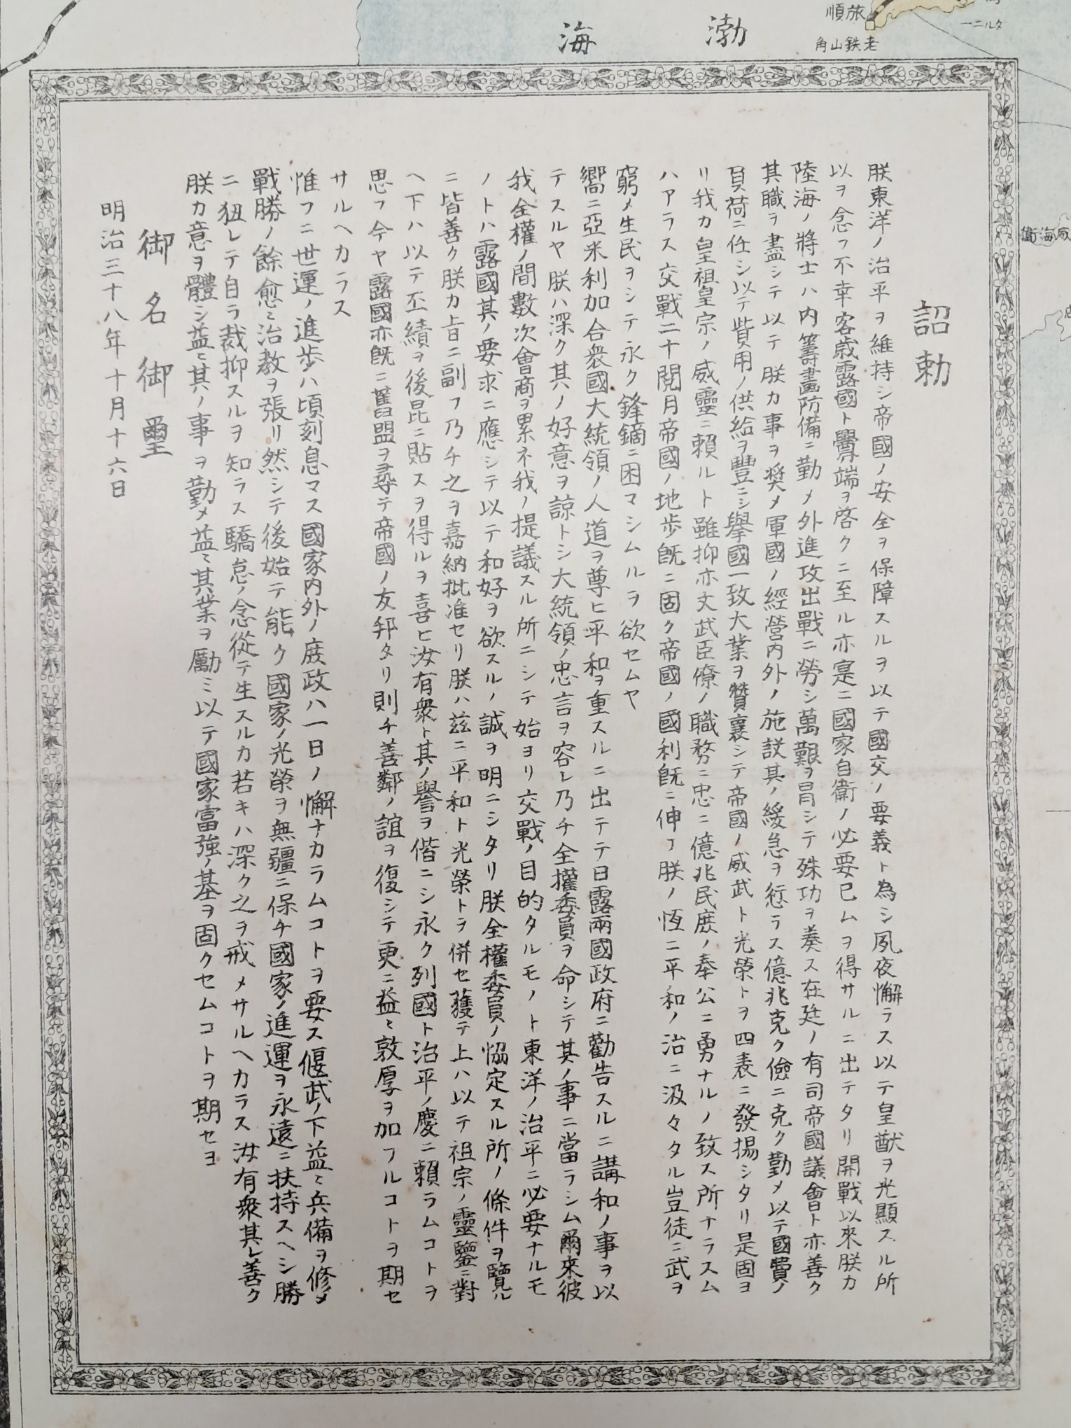 渤海
旅順
老鉄山角
タルニー
威海衞
詔勅
朕東洋ノ治平ヲ維持シ帝國ノ安全ヲ保障スルヲ以テ國交ノ要義ト為シ夙夜懈ラス以テ皇猷ヲ光顯スル所
以ヲ念フ不幸客歳露國ト釁端ヲ啓クニ至ル亦寔ニ國家自衛ノ必要已ムヲ得サルニ出テタリ開戰以來朕カ
陸海ノ將士ハ内籌畫防備ニ勤メ外進攻出戰ニ勞シ萬艱ヲ冒シテ殊功ヲ奏ス在廷ノ有司帝國議會ト亦善ク
其職ヲ盡シテ以テ朕カ事ヲ奨メ軍國ノ經營内外ノ施設其ノ緩急ヲ愆ラス億兆克ク儉ニ克ク勤メ以テ國費ノ
負荷ニ任シ以テ貲用ノ供給ヲ豐ニシ擧國一致大業ヲ贊襄シテ帝國ノ威武ト光榮トヲ四表ニ發揚シタリ是固ヨ
リ我カ皇祖皇宗ノ威靈ニ賴ルト雖抑亦文武臣僚ノ職務ニ忠ニ億兆民庶ノ奉公ニ勇ナルノ致ス所ナラスム
ハアラス交戰二十閲月帝國ノ地歩既ニ固ク帝國ノ國利既ニ伸フ朕ノ恆ニ平和ノ治ニ汲々タル豈徒ニ武ヲ
窮メ生民ヲシテ永ク鋒鏑ニ困マシムルヲ欲セムヤ
嚮ニ亞米利加合衆國大統領ノ人道ヲ尊ヒ平和ヲ重スルニ出テテ日露兩國政府ニ勸告スルニ講和ノ事ヲ以
テスルヤ朕ハ深ク其ノ好意ヲ諒トシ大統領ノ忠言ヲ容レ乃チ全權委員ヲ命シテ其ノ事ニ當ラシム爾來彼
我全權ノ間數次會商ヲ累ネ我ノ提議スル所ニシテ始ヨリ交戰ノ目的タルモノト東洋ノ治平ニ必要ナルモ
ノトハ露國其ノ要求ニ應シテ以テ和好ヲ欲スルノ誠ヲ明ニシタリ朕全權委員ノ協定スル所ノ條件ヲ覽ル
ニ皆善ク朕カ旨ニ副フ乃チ之ヲ嘉納批准セリ朕ハ茲ニ平和ト光榮トヲ併セ獲テ上ハ以テ祖宗ノ靈鑒ニ對
ヘ下ハ以テ丕績ヲ後昆ニ貽スヲ得ルヲ喜ヒ汝有衆ト其ノ譽ヲ偕ニシ永ク列國ト治平ノ慶ニ賴ラムコトヲ
思フ今ヤ露國亦既ニ舊盟ヲ尋テ帝國ノ友邦タリ則チ善鄰ノ誼ヲ復シテ更ニ益〻敦厚ヲ加フルコトヲ期セ
サルヘカラス
惟フニ世運ノ進歩ハ頃刻息マス國家内外ノ庶政ハ一日ノ懈ナカラムコトヲ要ス偃武ノ下益〻兵備ヲ修メ
戰勝ノ餘愈〻治教ヲ張リ然シテ後始テ能ク國家ノ光榮ヲ無疆ニ保チ國家ノ進運ヲ永遠ニ扶持スヘシ勝
ニ狃レテ自ラ裁抑スルヲ知ラス驕怠ノ念從テ生スルカ若キハ深ク之ヲ戒メサルヘカラス汝有衆其レ善ク
朕カ意ヲ體シ益〻其ノ事ヲ勤メ益〻其業ヲ勵ミ以テ國家富強ノ基ヲ固クセムコトヲ期セヨ
御名御璽
明治三十八年十月十六日